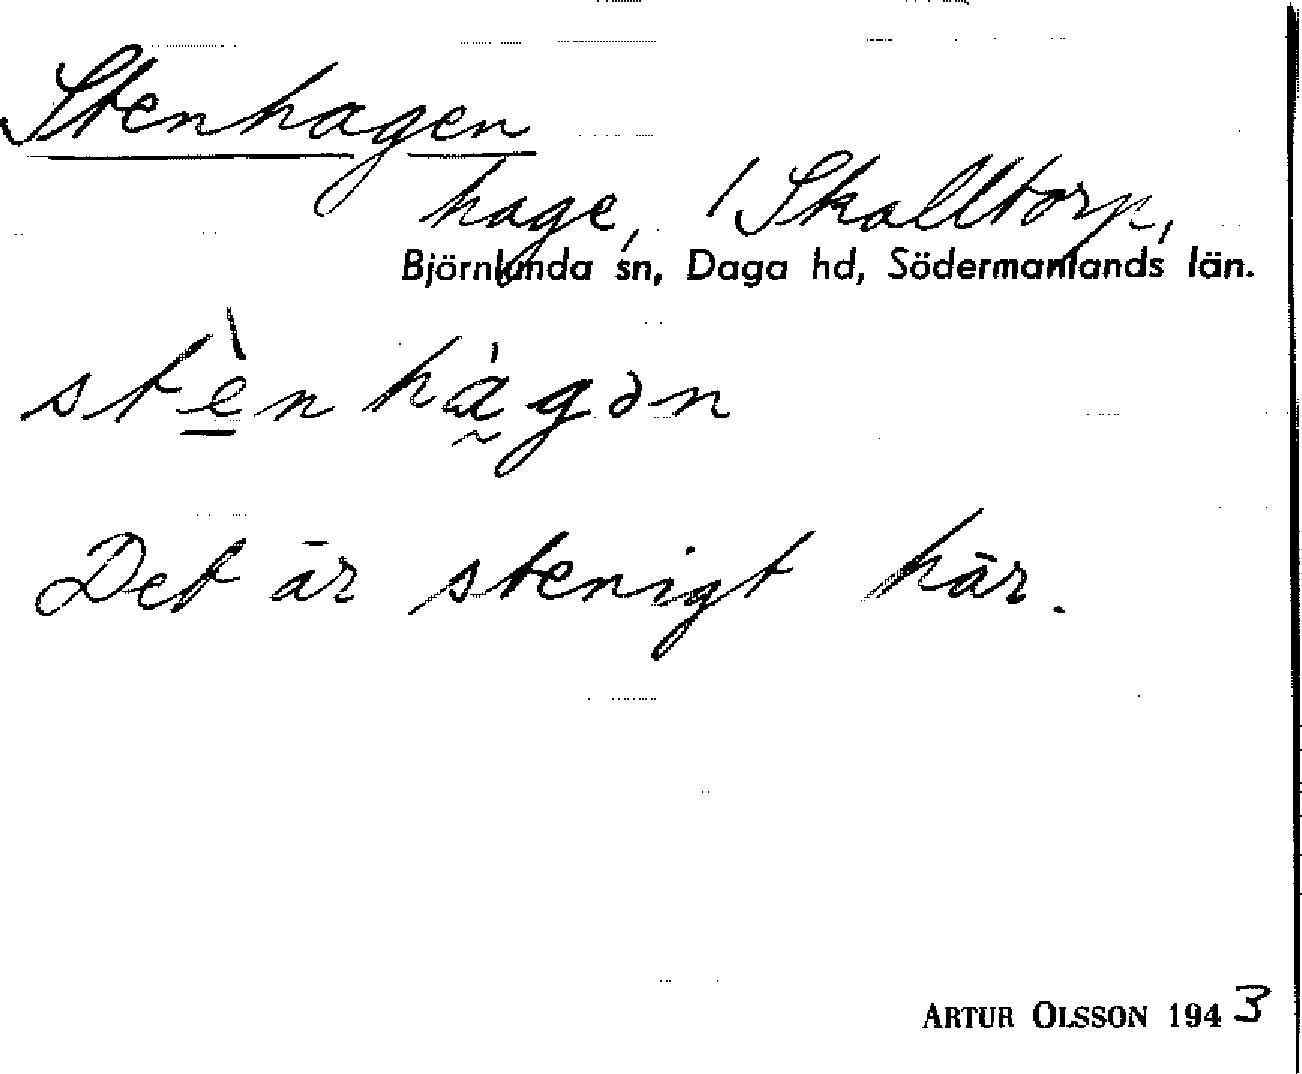 Stenhagen
hage, 1 Skalltorp,
Björnlunda sn, Daga hd, Södermanlands län.
stè̲nhá̰gən
Det är stenigt här.
ARTUR OLSSON 1943